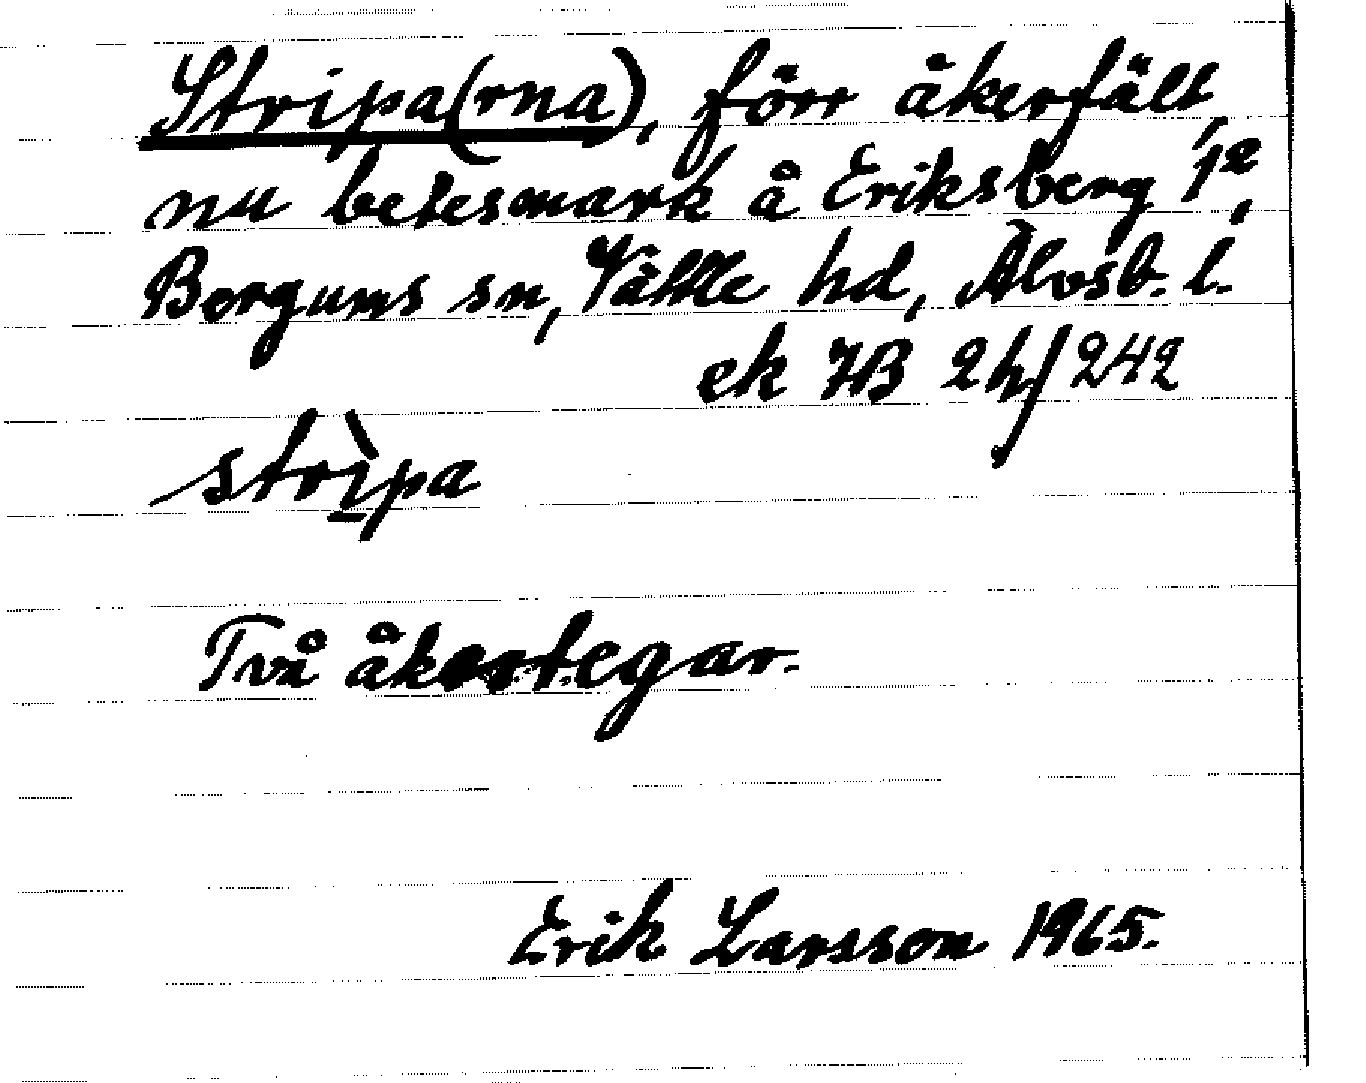 Stripa(rna), förr åkerfält,
nu betesmark å Eriksberg 1²,
Bergums sn, Vättle hd, Älvsb. l.
ek 7B 2h/242
strìpa
Två åkertegar.
Erik Larsson 1965.